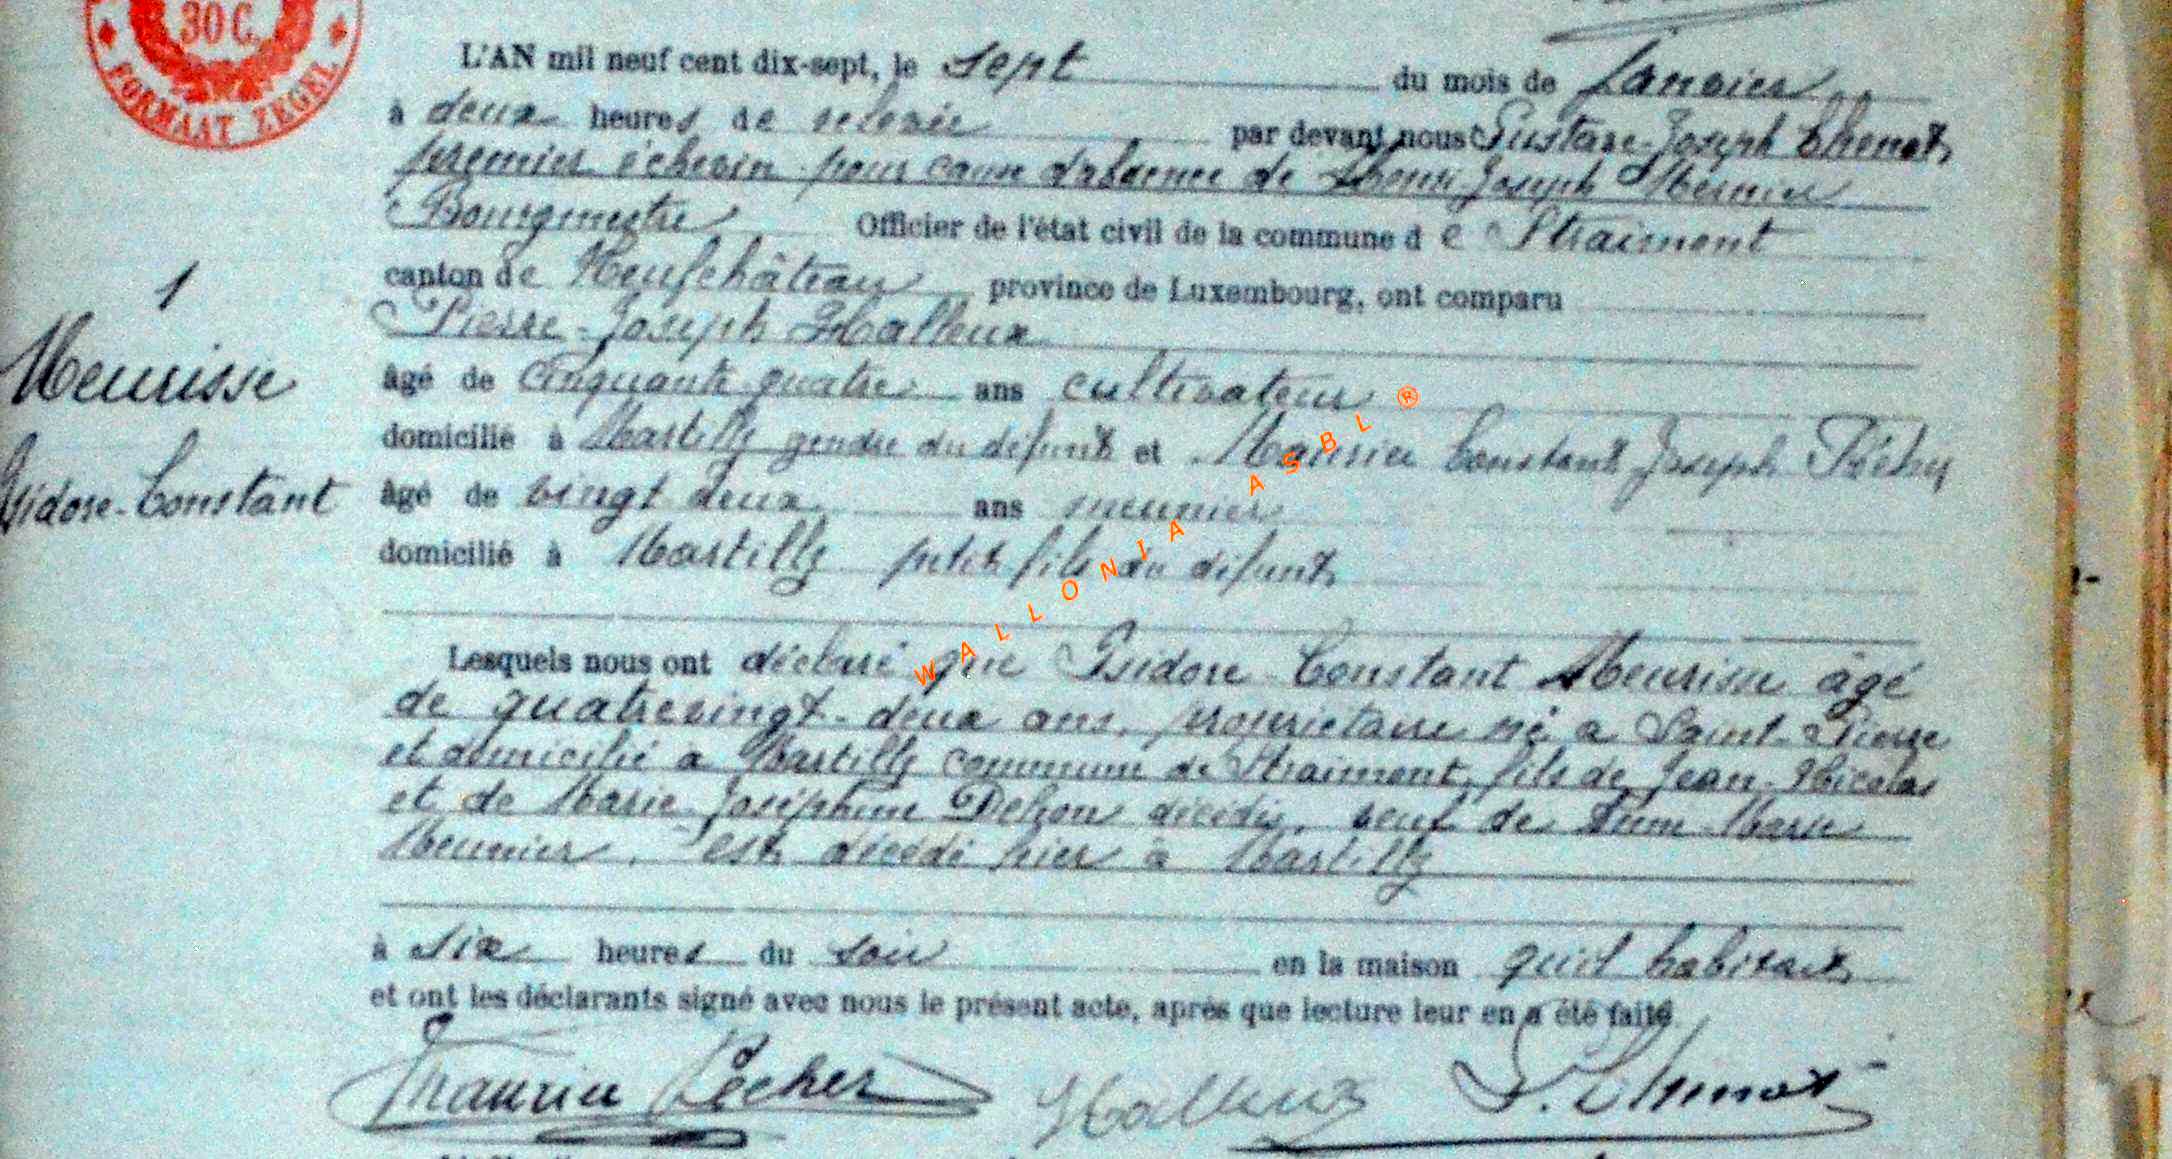 30 C.
FORMAAT ZEGEL
L'AN mil neuf cent dix-sept, le sept du mois de Janvier
à deux heures de relevée par devant nous Gustave-Joseph Thenot,
premier échevin pour cause d'absence de Henri Joseph Mernier
Bourgmestre Officier de l'état civil de la commune de Straimont
canton de Neufchâteau province de Luxembourg, ont comparu
Pierre-Joseph Halleux
âgé de cinquante-quatre ans cultivateur
domicilié à Martilly gendre du défunt et Maurice Constant Joseph
âgé de vingt deux ans meunier
domicilié à Martilly petit fils du défunt,
1
Meurisse
Isidore-Constant
Lesquels nous ont déclaré que Isidore Constant Meurisse âgé
de quatrevingt-deux ans, propriétaire né à Saint-Pierre
et domicilié à Martilly commune de Straimont, fils de Jean-Nicolas
et de Marie-Joséphine Dehon décédés, veuf de Marie
Meunier, est décédé hier à Martilly
à six heures du soir en la maison qu'il habitait,
et ont les déclarants signé avec nous le présent acte, après que lecture leur en a été faite
Maurice Halleux G. Thenot
WALLONIA ASBL ®